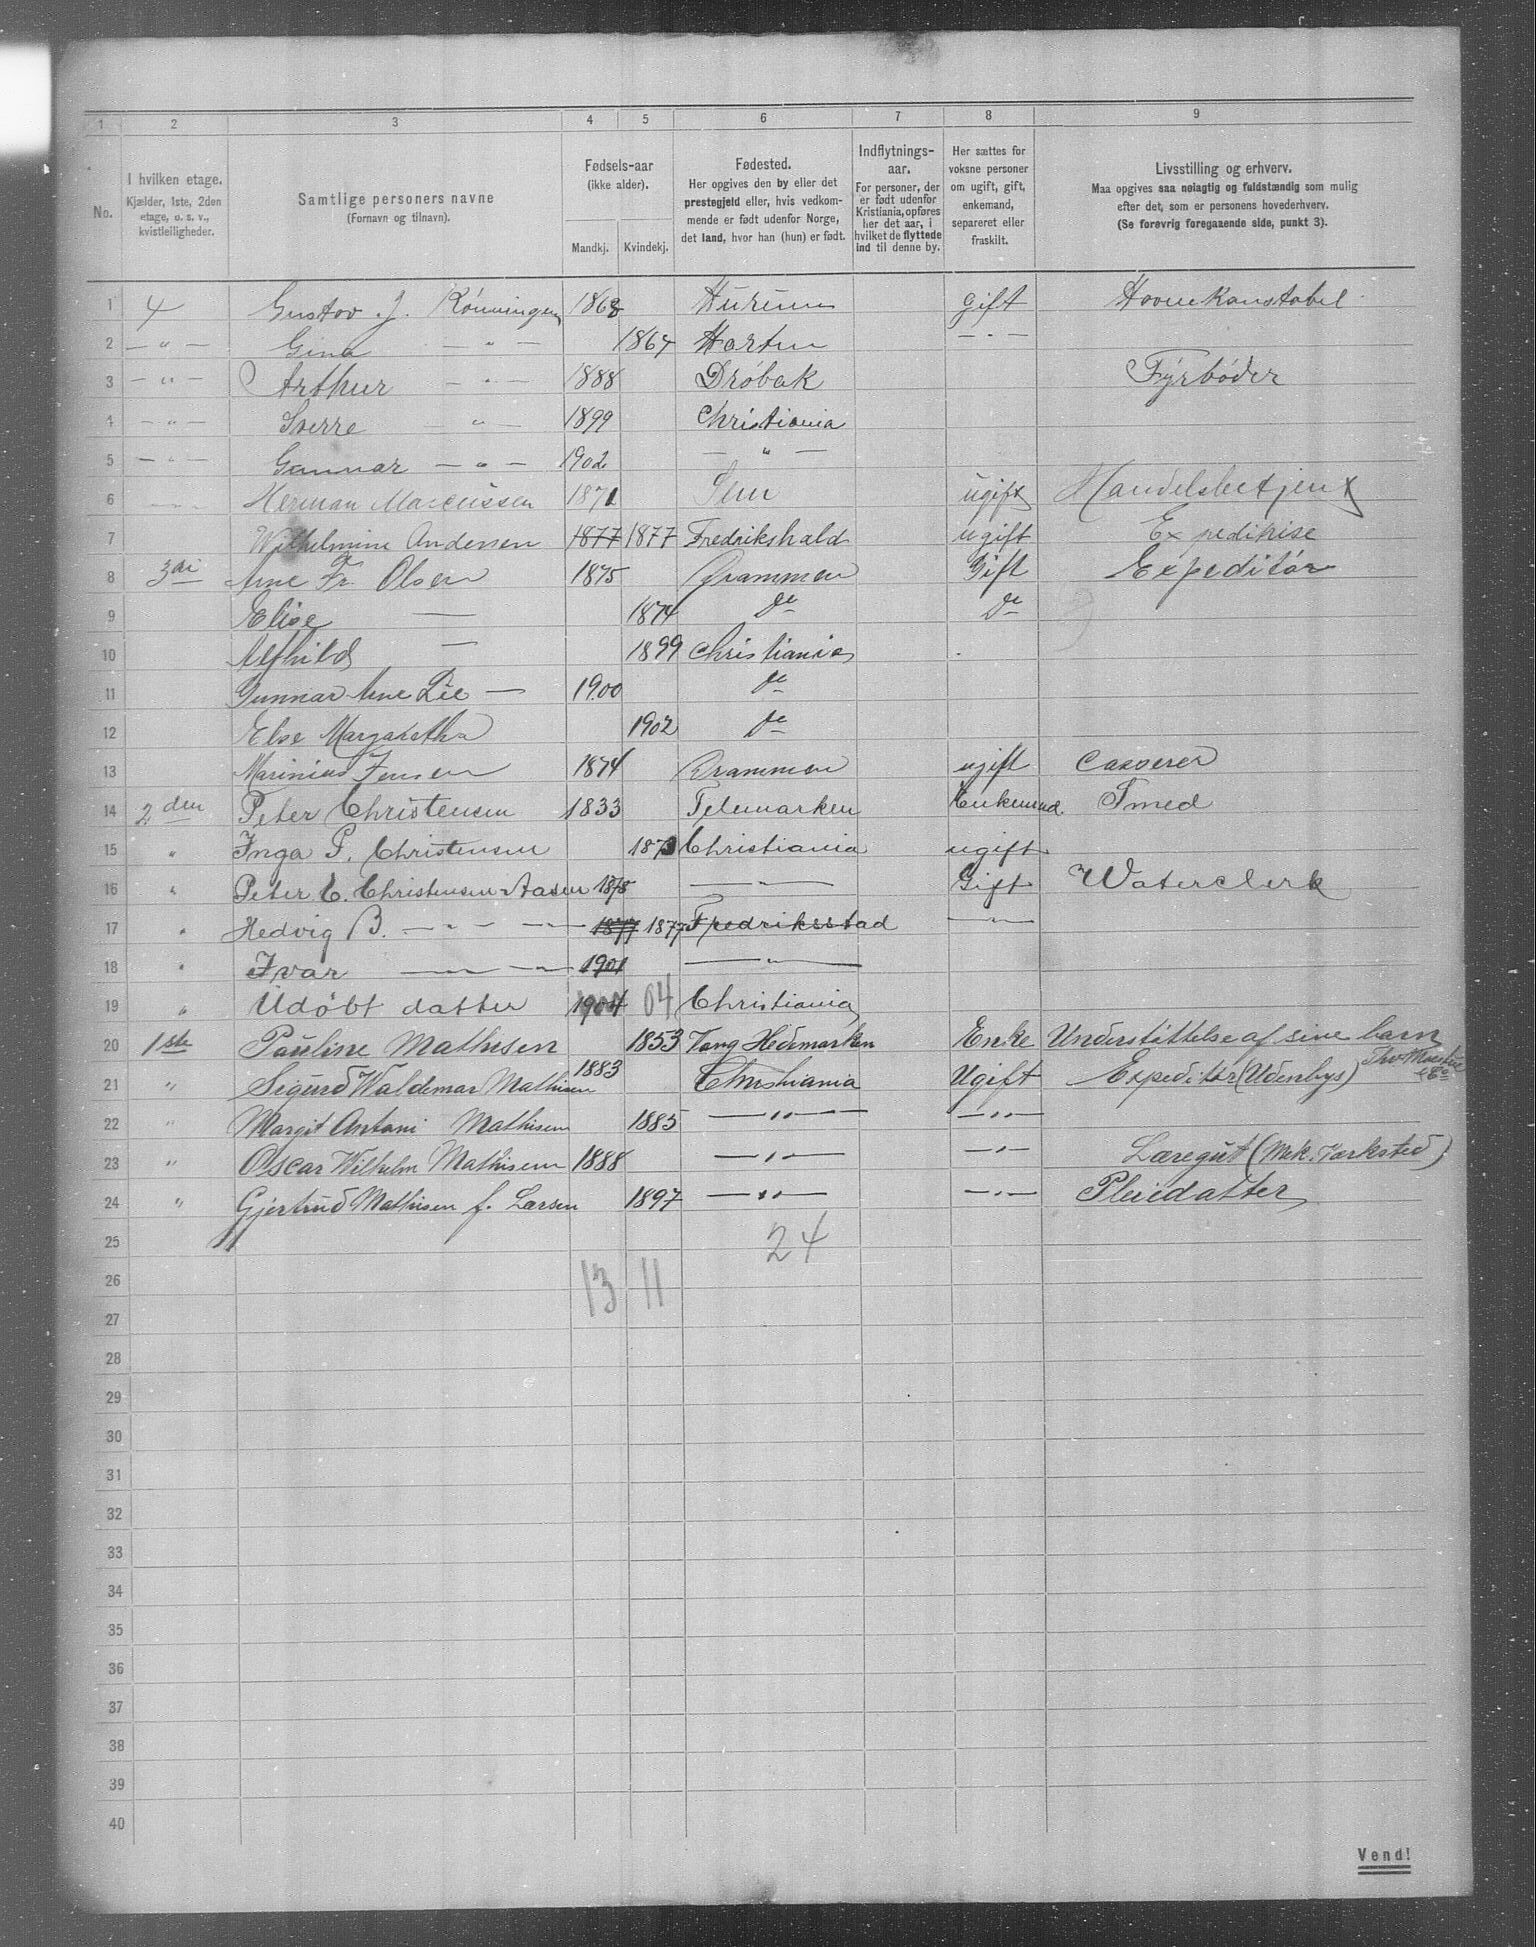 1 2 3 4 5 6 7 8 9
No.
I hvilken etage.
Kjælder, 1ste, 2den
etage, o. s. v.,
kvistleiligheder.
Samtlige personers navne
(Fornavn og tilnavn).
Fødsels-aar
(ikke alder).
Mandkj. Kvindekj.
Fødested.
Her opgives den by eller det
prestegjeld eller, hvis vedkom-
mende er født udenfor Norge,
det land, hvor han (hun) er født.
Indflytnings-
aar.
For personer, der
er født udenfor
Kristiania, opføres
her det aar, i
hvilket de flyttede
ind til denne by.
Her sættes for
voksne personer
om ugift, gift,
enkemand,
separeret eller
fraskilt.
Livsstilling og erhverv.
Maa opgives saa nøiagtig og fuldstændig som mulig
efter det, som er personens hovederhverv.
(Se forøvrig foregaaende side, punkt 3).
1 4 Gustav J. Rønningen 1868 Hurum gift Havnekonstabel
2 — " — Gina — " — 1867 Horten — " —
3 — " — Arthur — " — 1888 Drøbak Fyrbøder
4 — " — Sverre — " — 1899 Christiania
5 — " — Gunnar — " — 1902 — " —
6 — " — Herman Marcussen 1871 Sem ugift Handelsbetjent
7 Wilhelmine Andersen 1877 1877 Fredrikshald ugift Expeditrise
8 3di Arne Fr. Olsen 1875 Drammen Gift Expeditør
9 Elise — 1874 do do
10 Alfhild — 1899 Christiania
11 Gunnar Arne Lie — 1900 do
12 Else Margaretha 1902 do
13 Marinius Jensen 1874 Drammen ugift Casserer
14 2den Peter Christensen 1833 Telemarken Enkemnd. Smed
15 " Inga P. Christensen 1873 Christiania ugift
16 " Peter C. Christensen-Aasen 1875 — " — Gift Waterclerk
17 " Hedvig B. — " — " — 1877 1877 Fredriksstad — " —
18 " Ivar — " — " — 1901 — " —
19 " Udøbt datter 1904 04 Christiania
20 1ste Pauline Mathisen 1853 Vang Hedemarken Enke Understøttelse af sine barn
21 " Sigurd Waldemar Mathisen 1883 Christiania Ugift Expeditør (Udenbys)
22 " Margit Antoni Mathisen 1885 — " — — " —
23 " Oscar Wilhelm Mathisen 1888 — " — — " — Læregut (Mek. Værksted)
24 " Gjertrud Mathisen f. Larsen 1897 — " — — " — Pleiedatter
25 24
26 13 11
27
28
29
30
31
32
33
34
35
36
37
38
39
40
Vend!